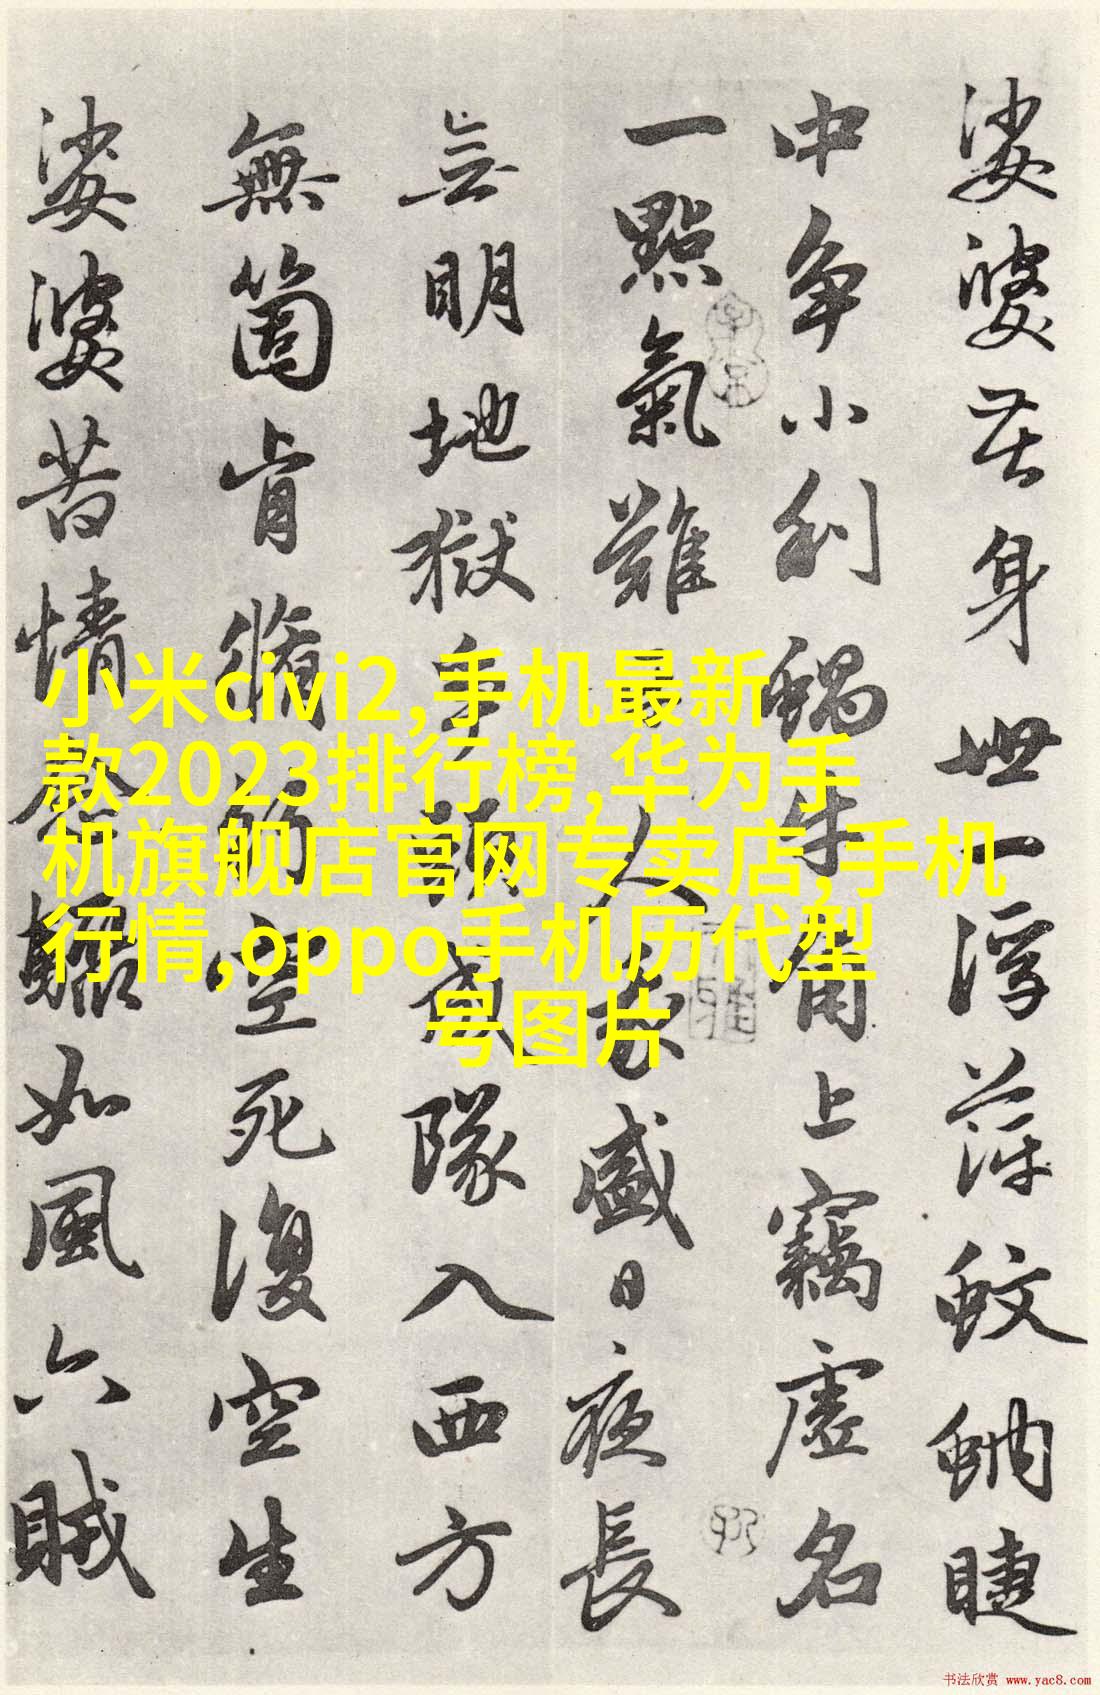 娑婆苦身世一浮萍蚊蚋睫
中争小利蝸牛角上竊虚名
一點氣難平人我盛日夜長
无明地獄争頭成隊入西方
無箇肯脩行空死復空生
娑婆苦情念驟如風六賊
小米civi2,手机最新
款2023排行榜,华为手
机旗舰店官网专卖店,手机
行情,oppo手机历代型
号图片
书法欣赏 www.yac8.com